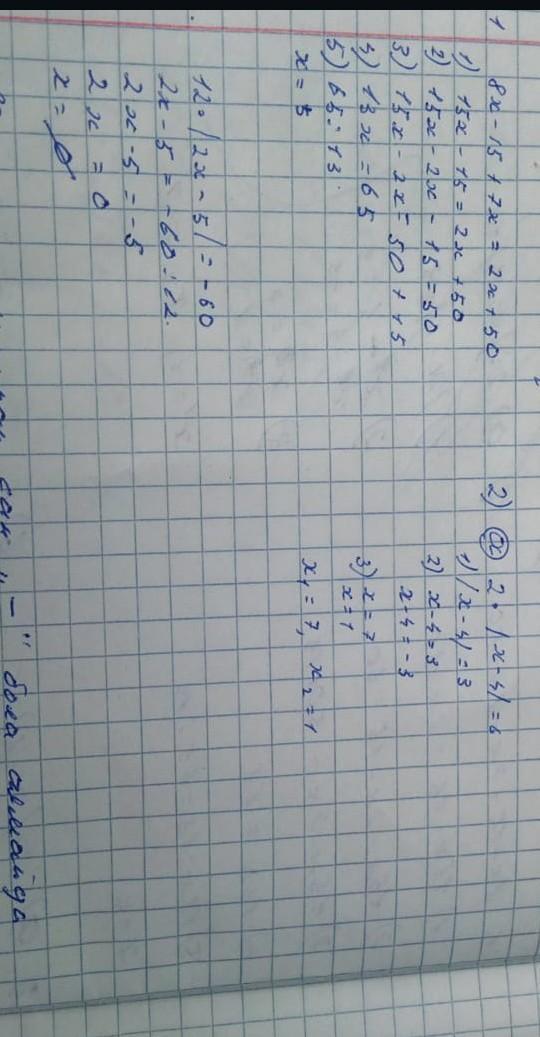 1
8x - 15 + 7x = 2x + 50
1) 15x - 15 = 2x + 50
2) 15x - 2x - 15 = 50
3) 15x - 2x = 50 + 15
4) 13x = 65
5) 65 : 13
x = 5
2) a) 2 · |x - 4| = 6
1) |x - 4| = 3
2) x - 4 = 3
x - 4 = -3
3) x = 7
x = 1
x₁ = 7, x₂ = 1
12 · |2x - 5| = -60
2x - 5 = -60 : 12.
2x - 5 = -5
2x = 0
x = ø
"-" бола алмайды